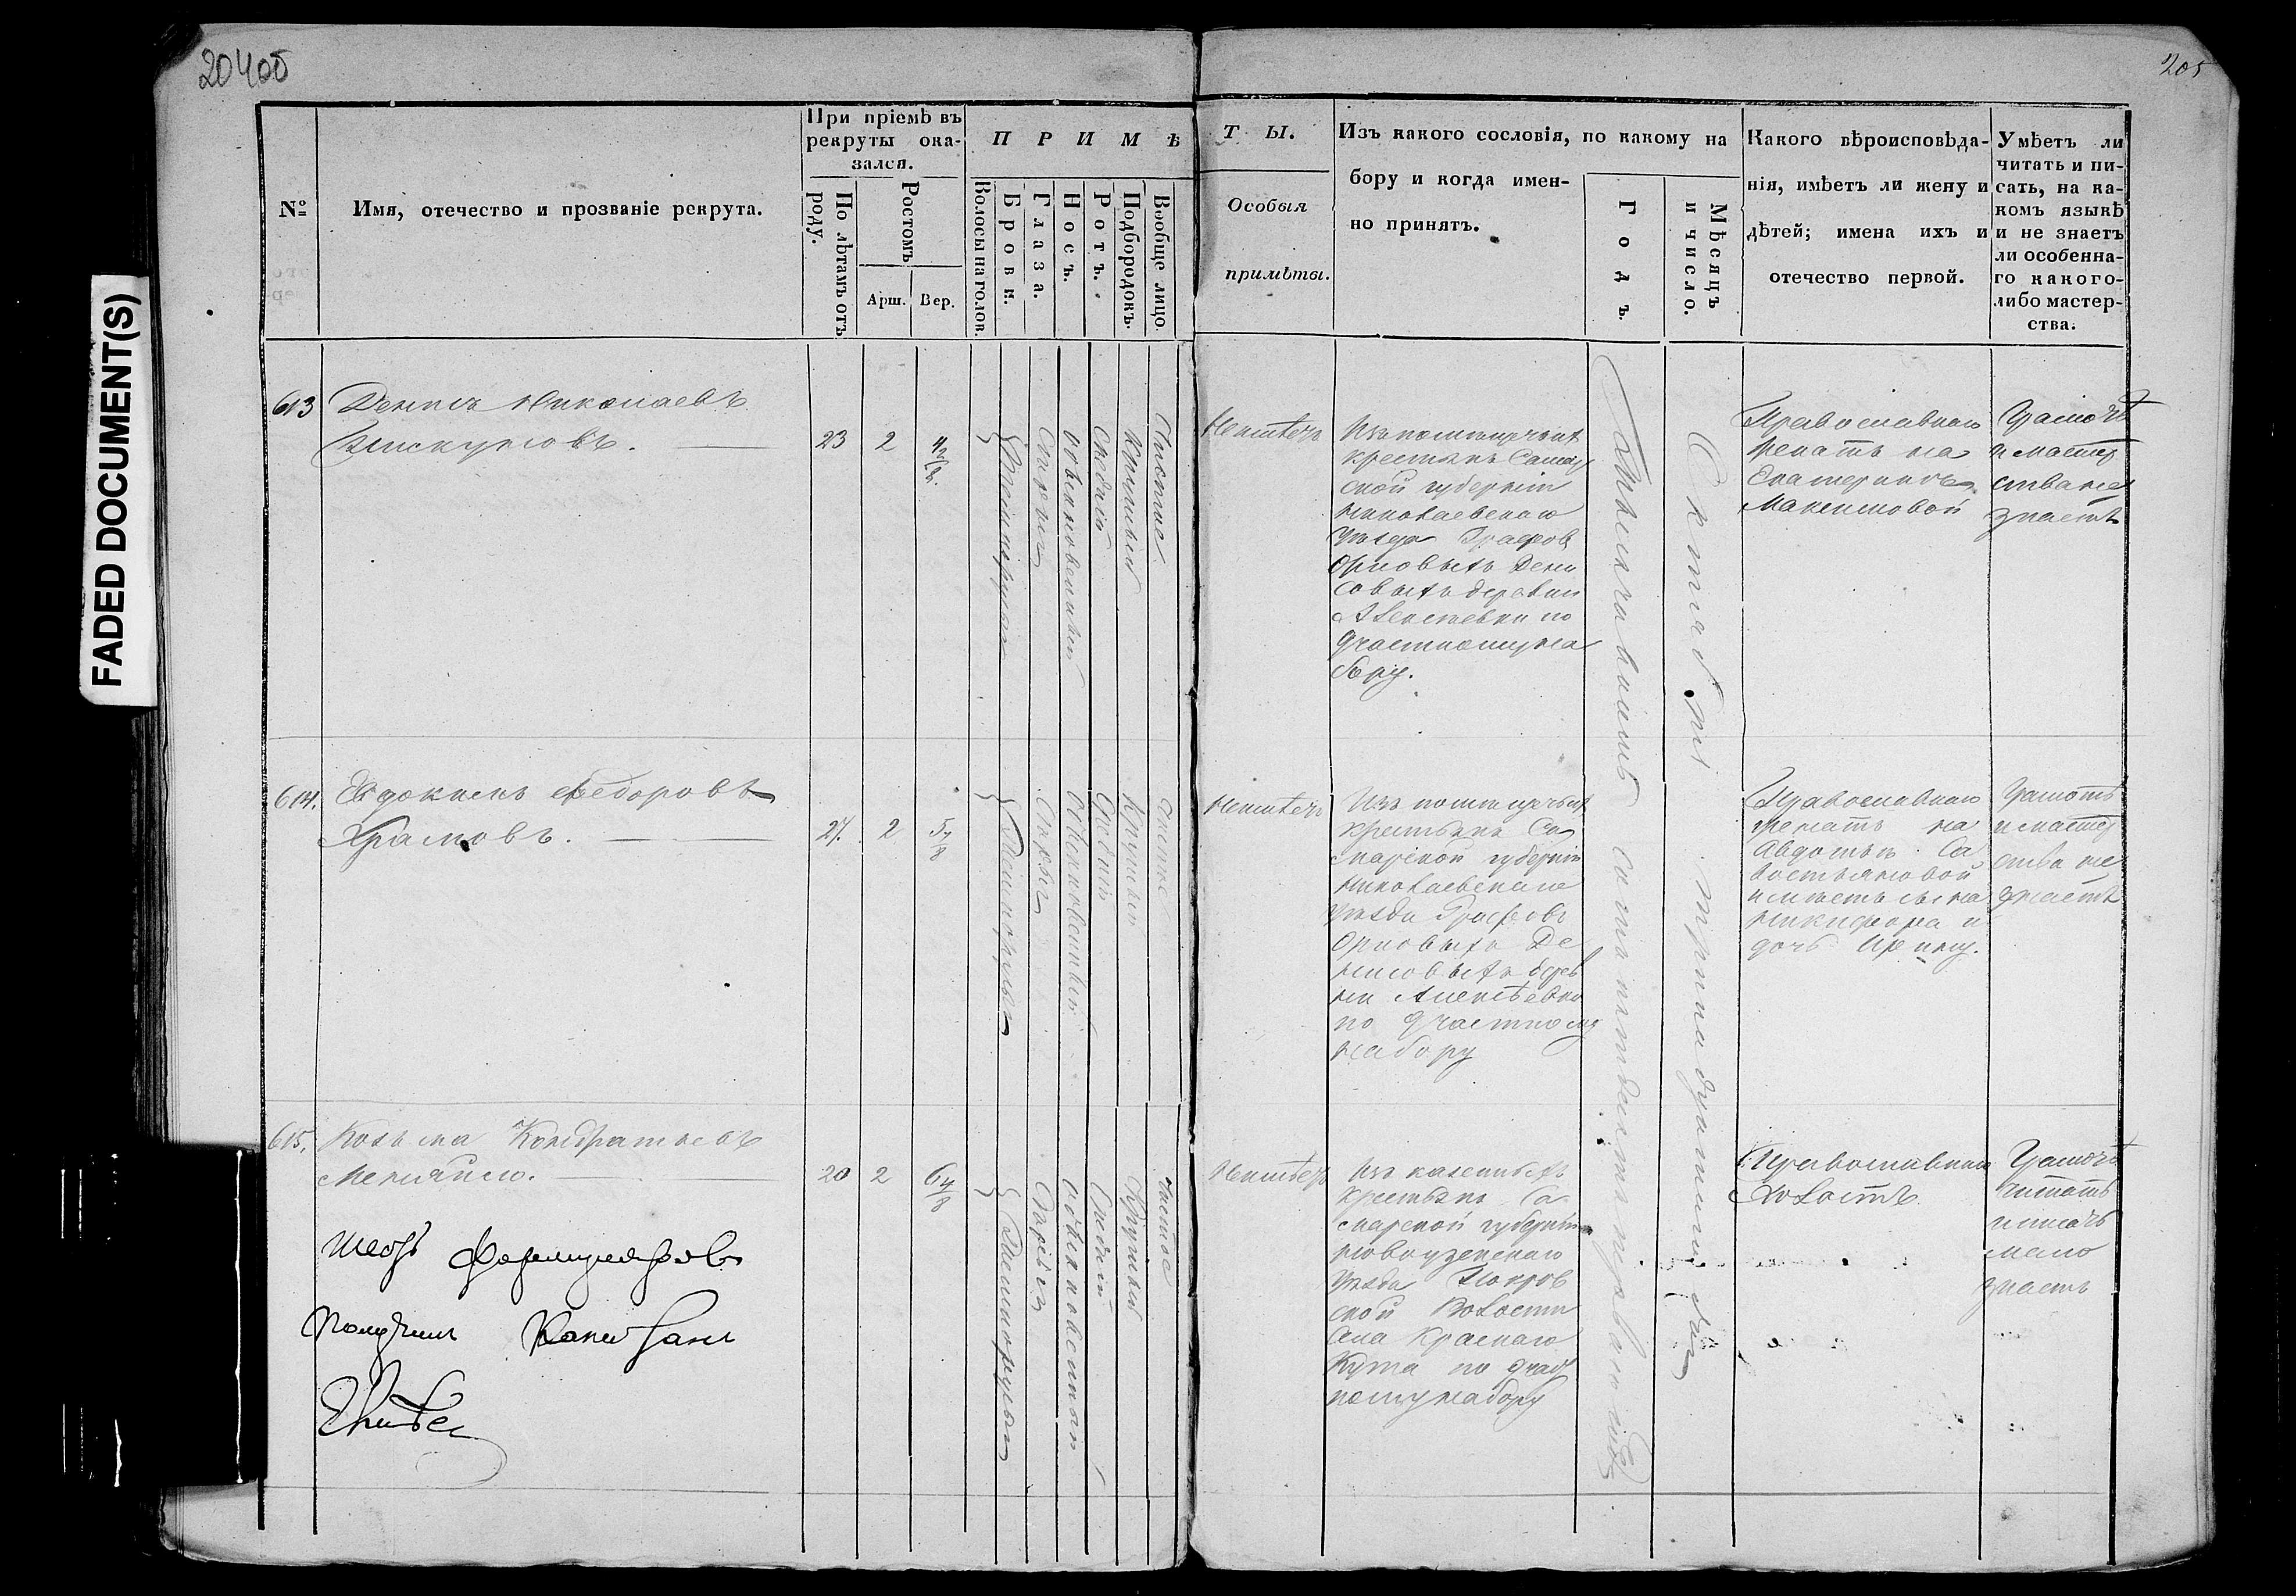 204об
205
FADED DOCUMENT(S)
№
Имя, отечество и прозваніе рекрута.
При пріемѣ въ
рекруты ока-
зался.
По лѣтамъ отъ
роду.
Ростомъ
Арш.
Вер.
П Р И М Ѣ
Волосы на голов.
Брови.
Глаза.
Носъ.
Ротъ.
Подбородокъ.
Вообще лицо.
Т Ы.
Особыя
примѣты.
Изъ какого сословія, по какому на
бору и когда имен-
но принятъ.
Годъ.
Мѣсяцъ
и число.
Какого вѣроисповѣда-
нія, имѣетъ ли жену и
дѣтей; имена ихъ и
отечество первой.
Умѣетъ ли
читать и пи-
сать, на ка-
комъ языкѣ
и не знаетъ
ли особенна-
го какого-
либо мастер-
ства.
613
Денисъ Николаевъ
Пискуновъ.
23
2
4 2/8
Темнорусыя
Сѣрыя
обыкновенный
Средній
Круглый
Чистое
Неимѣетъ
Изъ помѣщичьихъ
крестьянъ Самар
ской губерніи
Николаевскаго
уѣзда Графовъ
Орловыхъ Дени
совыхъ деревни
Алексѣевки по
частному на
бору.
Православнаго
женатъ на
Екатеринѣ
Максимовой
Грамотѣ
и мастер
ства не
знаетъ
614.
Евдокимъ Федоровъ
Храмовъ.
27.
2
5 7/8
Темнорусыя
Сѣрыя
Обыкновенный
Средній
Круглый
Чистое
Неимѣетъ
Изъ помѣщичьихъ
крестьянъ Са
марской губерніи
Николаевскаго
уѣзда Графовъ
Орловыхъ Де
нисовыхъ дерев
ни Алексѣевки
по частному
набору
Православнаго
женатъ на
Авдотьѣ Са
востьяновой
имѣетъ сына
Никифора и
дочь Ирину.
Грамотѣ
и мастер
ства не
знаетъ
615.
Козьма Кондратьевъ
Меняйло.
20
2
6 4/8
Темнорусыя
Карія
обыкновенный
Средній
Круглый
Чистое
Неимѣетъ
Изъ казенныхъ
крестьянъ Са
марской губерніи
Новоузенскаго
уѣзда Покров
ской волости
села Краснаго
Кута по част
ному набору
Православнаго
холостъ
Грамотѣ
читать
писать
мало
знаетъ
Тысяча восемь сотъ пятьдесятъ перваго года
Октября тринадцатаго дня
формуляровъ
Получилъ Капитанъ